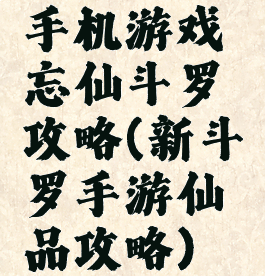 手机游戏
忘仙斗罗
攻略(新斗
罗手游仙
品攻略)